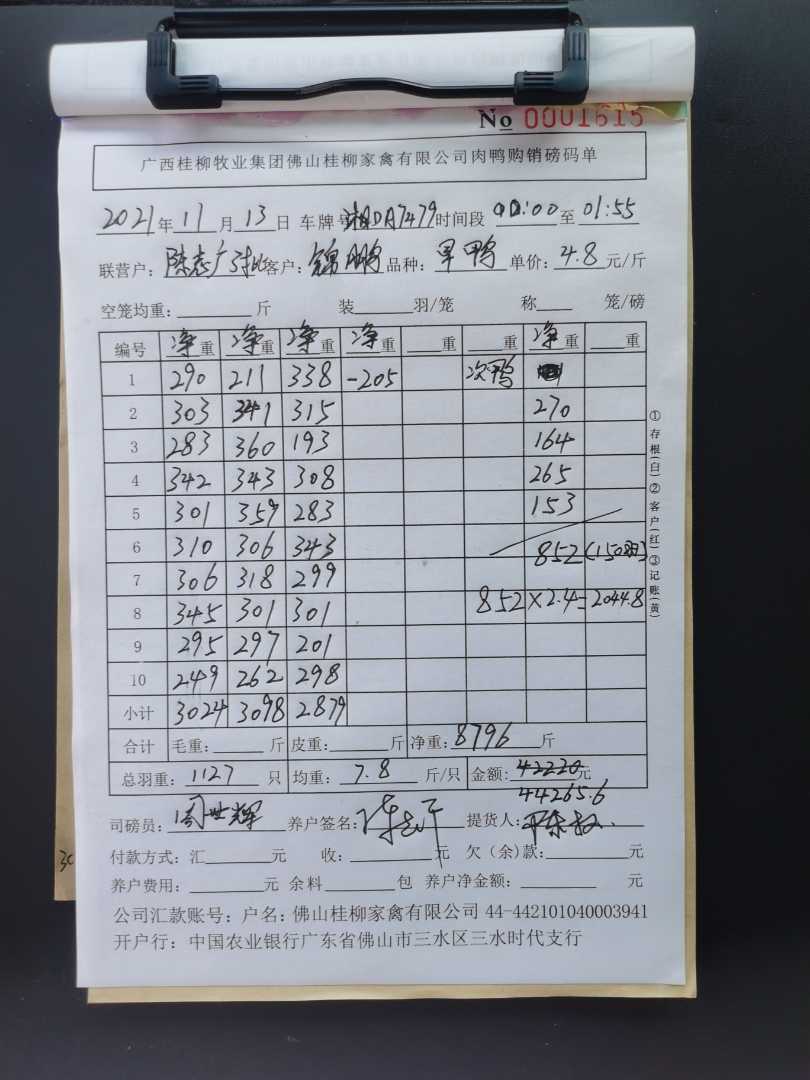 No 0001615
广西桂柳牧业集团佛山桂柳家禽有限公司肉鸭购销磅码单
2021年11月13日 车牌号湘DA7479时间段 00:00至01:55
联营户: 陈志广 客户: 锦鹏 品种: 单价: 4.8元/斤
空笼均重: 斤 装 羽/笼 称 笼/磅
编号 净重 净重 净重 净重 重 重 净重 重
1 290 211 338 -205 次鸭
2 303 341 315 270
3 283 360 193 164
4 342 343 308 265
5 301 359 283 153
6 310 306 343 852 (150羽)
7 306 318 299
8 345 301 301 852×2.4=2044.8
9 295 297 201
10 249 262 298
小计 3024 3098 2879
合计 毛重: 斤 皮重: 斤 净重: 8796 斤
总羽重: 1127 只 均重: 7.8 斤/只 金额: 42220元
44265.6
司磅员: 周世辉 养户签名: 提货人:
付款方式: 汇 元 收: 元 欠(余)款: 元
养户费用: 元 余料 包 养户净金额: 元
公司汇款账号: 户名: 佛山桂柳家禽有限公司 44-442101040003941
开户行: 中国农业银行广东省佛山市三水区三水时代支行
①存根(白)②客户(红)③记账(黄)